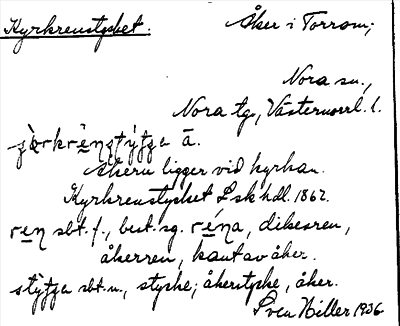 Kyrkrenstycket. Åker i Torrom;
Nora sn.,
Nora tg., Västernorrl. l.
Åkern ligger vid kyrkan.
Kyrkrenstycket L sk hdl. 1862.
ren sbt. f., best. sg. réna, dikesren,
åkerren, kant av åker.
sbt. n., stycke; åkerstycke, åker.
Sven Hiller 1936